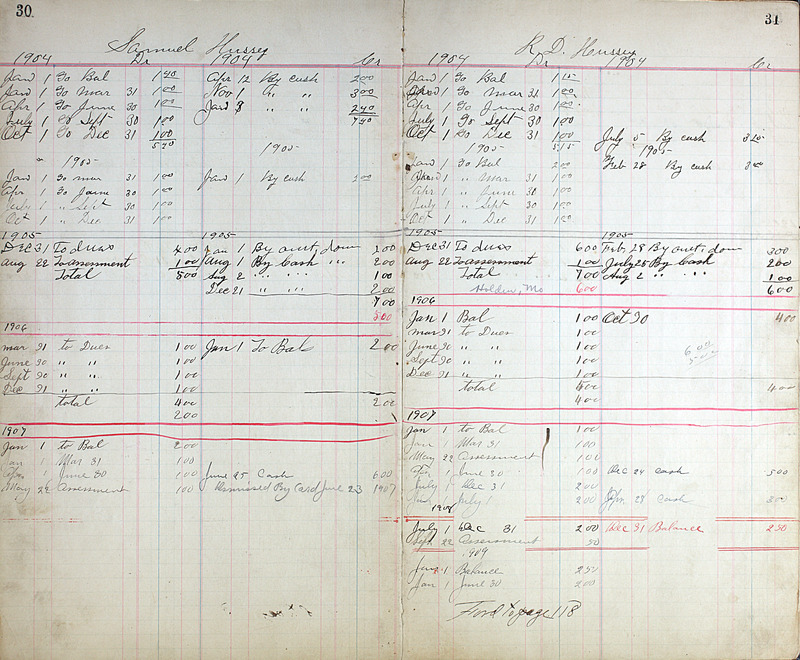 30
Samuel Hussey
1904 Dr 1904 Cr
Jan 1 To Bal 1 40 Apr 12 By cash 2 00
Jan 1 To Mar 31 1 00 Nov 1 " " " 3 00
Apr 1 To June 30 1 00 Jan 3 " " 2 40
July 1 To Sept 30 1 00 7 40
Oct 1 To Dec 31 1 00
5 40 1905
" 1905
Jan 1 To Mar 31 1 00 Jan 1 By cash
Apr 1 To June 30 1 00
July 1 " Sept 30 1 00
Oct 1 " Dec 31 1 00
1905 1905
Dec 31 To dues 4 00 Jan 1 By amt. down 2 00
Aug 22 To assessment 1 00 Aug 1 By Cash " " 2 00
Total 5 00 Aug 2 " " " " 1 00
Dec 21 2 00
7 00
5 00
1906
Mar 31 to Dues 1 00 Jan 1 To Bal 2 00
June 30 " " 1 00
Sept 30 " " 1 00
Dec 31 " " 1 00
total 4 00 2 00
2 00
1907
Jan 1 to Bal 2 00
Jan 1 Mar 31 1 00
Apr 1 June 30 1 00 June 25 Cash 6 00
May 22 Assessment 1 00 Dismissed By Card June 23 1907
31
R. D. Hussey
1904 Dr 1904 Cr
Jan 1 To Bal
Jan 1 To Mar 31 1 00
Apr 1 To June 30 1 00
July 1 To Sept 30 1 00
Oct 1 To Dec 31 1 00 July 5 By cash
1905 5 15 1905
Jan 1 To Bal 2 00 Feb 28 By cash 3 00
Jan 1 " Mar 31 1 00
Apr 1 " June 30 1 00
July 1 " Sept 30 1 00
Oct 1 " Dec 31 1 00
1905 1905
Dec 31 To dues 6 00 Feb 28 By amt. down 3 00
Aug 22 To assessment 1 00 July 25 By Cash 2 00
Total 7 00 Aug 2 " " " " 1 00
Holden, Mo 6 00 6 00
1906
Jan 1 Bal 1 00 Oct 30 4 00
Mar 31 to Dues 1 00
June 30 " " 1 00
Sept 30 " " 1 00
Dec 31 " " 1 00
total 4 00
4 00
1907
Jan 1 to Bal 1 00
Jan Mar 31 1 00
May 22 Assessment 1 00
Apr 1 June 30 1 00 Dec 24 cash 5 00
July 1 Dec 31 2 00
Jan 1 July 1 2 00 Apr 28 Cash 3 00
1908
July 1 Dec 31 2 00 Dec 31 Balance 2 50
Sept 22 Assessment 50
1909
Jan 1 Balance 2 50
Jan 1 June 30 2 00
Ford to page 118